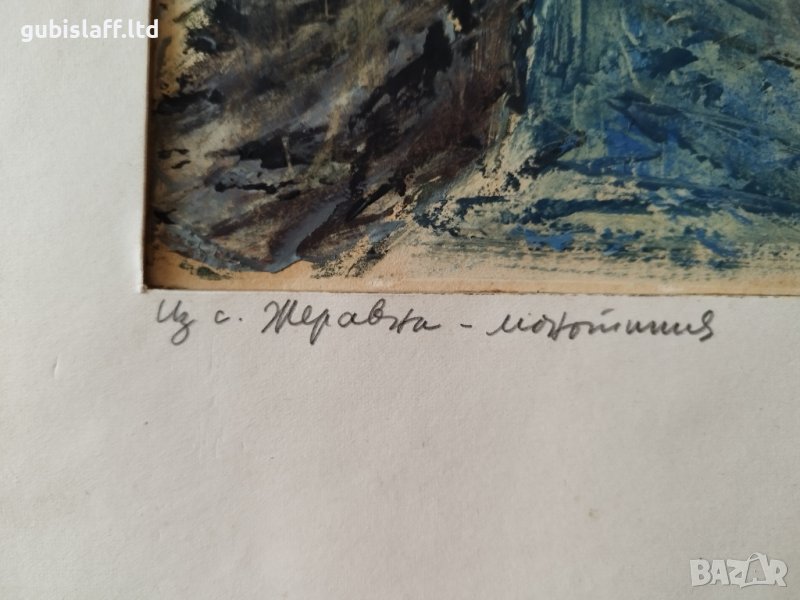 gubislaff.ltd
Из с. Жеравна - монотипия
BAZAR